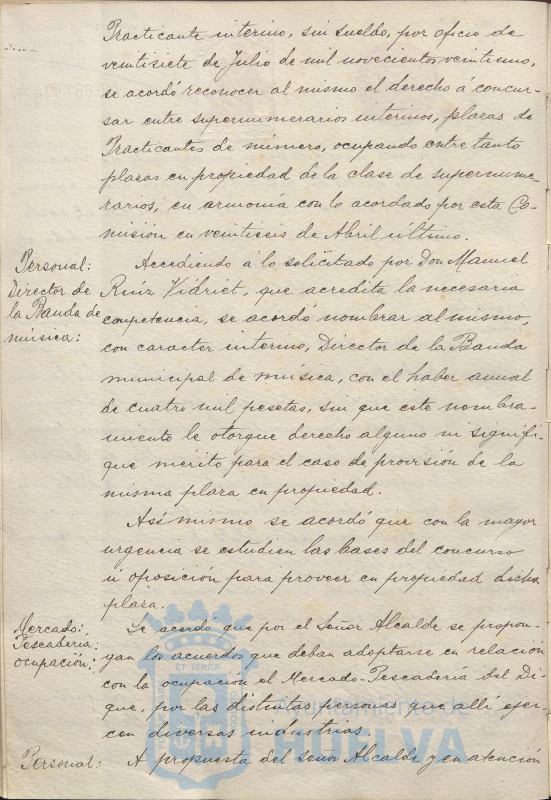 Practicante interino, sin sueldo, por oficio de
veintisiete de Julio de mil novecientos veintiuno,
se acordó reconocer al mismo el derecho á concur-
sar entre supernumerarios interinos, plazas de
Practicantes de número, ocupando entre tanto
plazas en propiedad de la clase de supernume-
rarios, en armonía con lo acordado por esta Co-
misión en veintiseis de Abril último.
Personal:
Director de
la Banda de
música:
Accediendo á lo solicitado por Don Manuel
Ruíz Vidriet, que acredita la necesaria
competencia, se acordó nombrar al mismo,
con caracter interino, Director de la Banda
municipal de música, con el haber anual
de cuatro mil pesetas, sin que este nombra-
miento le otorgue derecho alguno ni signifi-
que merito para el caso de provisión de la
misma plaza en propiedad.
Así mismo se acordó que con la mayor
urgencia se estudien las bases del concurso
ú oposición para proveer en propiedad dicha
plaza.
Mercado:
Pescadería:
ocupación:
Se acordó que por el Señor Alcalde se propon-
gan los acuerdos que deban adoptarse en relación
con la ocupación el Mercado-Pescadería del Di-
que, por las distintas personas que allí ejer-
cen diversas industrias.
Personal:
A propuesta del señor Alcalde y en atención
Ayuntamiento de
HUELVA